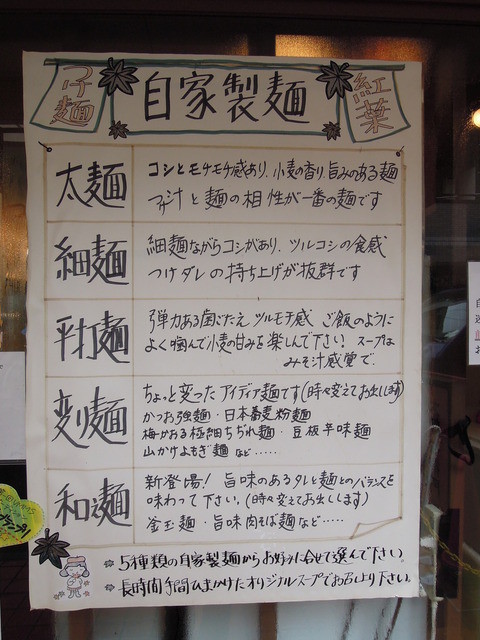 つけ麺
自家製麺
紅葉
太麺
コシとモチモチ感あり、小麦の香り、旨みのある麺
つけ汁と麺の相性が一番の麺です
細麺
細麺ながらコシがあり、ツルコシの食感
つけダレの持ち上げが抜群です
平打麺
弾力ある歯ごたえ ツルモチ感 ご飯のように
よく噛んで小麦の甘みを楽しんで下さい スープは
みそ汁感覚で
変り麺
ちょっと変ったアイディア麺です(時々変えてお出しします)
かつお強麺・日本蕎麦粉麺
梅かおる極細ちぢれ麺・豆板辛味麺
山かけよもぎ麺 など……
和え麺
新登場! 旨味のあるタレと麺とのバランスを
味わって下さい。(時々変えてお出しします)
釜玉麺・旨味肉そば麺など……
5種類の自家製麺からお好みに合せて選んで下さい。
長時間手間ひまかけたオリジナルスープでお召し上り下さい。